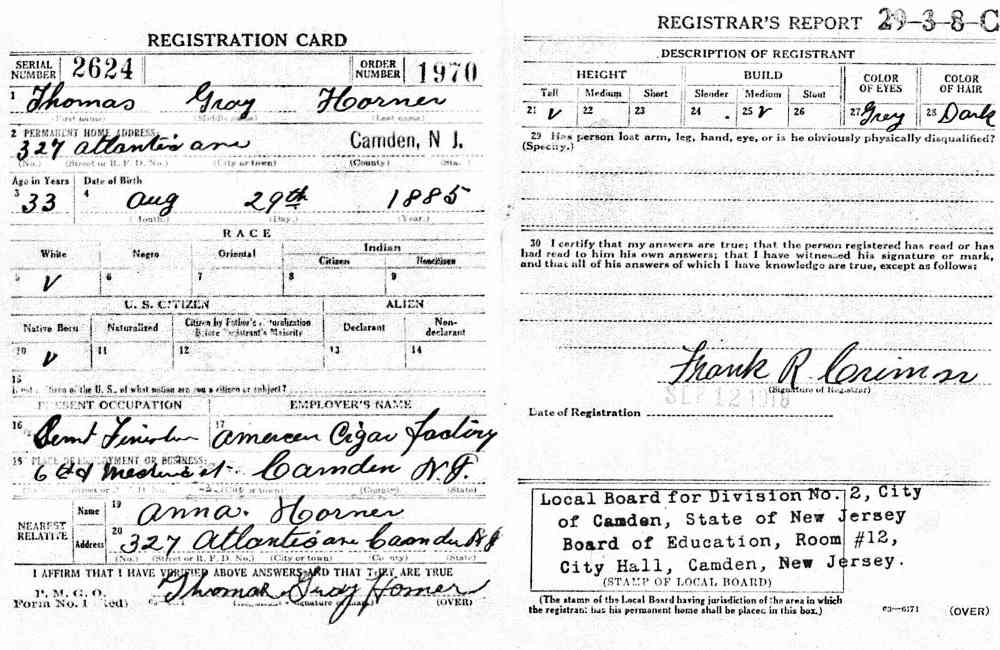 REGISTRATION CARD
SERIAL NUMBER 2624 ORDER NUMBER 1970
1 Thomas Gray Horner
(First name) (Middle name) (Last name)
2 PERMANENT HOME ADDRESS:
327 Atlantic ave Camden, N J.
(No.) (Street or R. F. D. No.) (City or town) (County) (State)
Age in Years Date of Birth
3 33 4 Aug 29th 1885
(Month.) (Day.) (Year.)
RACE
White Negro Oriental Indian
Citizen Noncitizen
5 V 6 7 8 9
U. S. CITIZEN ALIEN
Native Born Naturalized Citizen by Father's Naturalization Before Registrant's Majority Declarant Non-declarant
10 V 11 12 13 14
15
citizen of the U. S., of what nation are you a citizen or subject?
PRESENT OCCUPATION EMPLOYER'S NAME
16 17 American Cigar factory
18 PLACE OF EMPLOYMENT OR BUSINESS:
6th & st Camden N.J.
(No.) (Street or R. F. D. No.) (City or town) (County) (State)
NEAREST RELATIVE Name 19 Anna. Horner
Address 20 327 Atlantic ave Camden N J
(No.) (Street or R. F. D. No.) (City or town) (County) (State)
I AFFIRM THAT I HAVE VERIFIED ABOVE ANSWERS AND THAT THEY ARE TRUE
P. M. G. O.
Form No. 1 (Red) Thomas Gray Horner
(Registrant's signature or mark) (OVER)
REGISTRAR'S REPORT 29-3-8-C
DESCRIPTION OF REGISTRANT
HEIGHT BUILD COLOR OF EYES COLOR OF HAIR
Tall Medium Short Slender Medium Stout
21 V 22 23 24 25 V 26 27 Grey 28 Dark
29 Has person lost arm, leg, hand, eye, or is he obviously physically disqualified?
(Specify.)
30 I certify that my answers are true; that the person registered has read or has
had read to him his own answers; that I have witnessed his signature or mark,
and that all of his answers of which I have knowledge are true, except as follows:
Frank R
(Signature of Registrar)
Date of Registration SEP 12 1918
Local Board for Division No. 2, City
of Camden, State of New Jersey
Board of Education, Room #12,
City Hall, Camden, New Jersey.
(STAMP OF LOCAL BOARD)
(The stamp of the Local Board having jurisdiction of the area in which
the registrant has his permanent home shall be placed in this box.)
03—6171 (OVER)